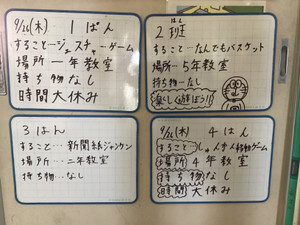 9/26(木) 1ぱん
すること…ジェスチャーゲーム
場所…一年教室
持ち物なし
時間大休み
2班
はん
すること…なんでもバスケット
場所…5年教室
持ち物…なし
楽しく遊ぼう!!
3はん
すること…新聞紙ジャンケン
場所…二年教室
持ち物…なし
9/26(木) 4はん
すること…
場所 4年教室
持ち物なし
時間 大休み